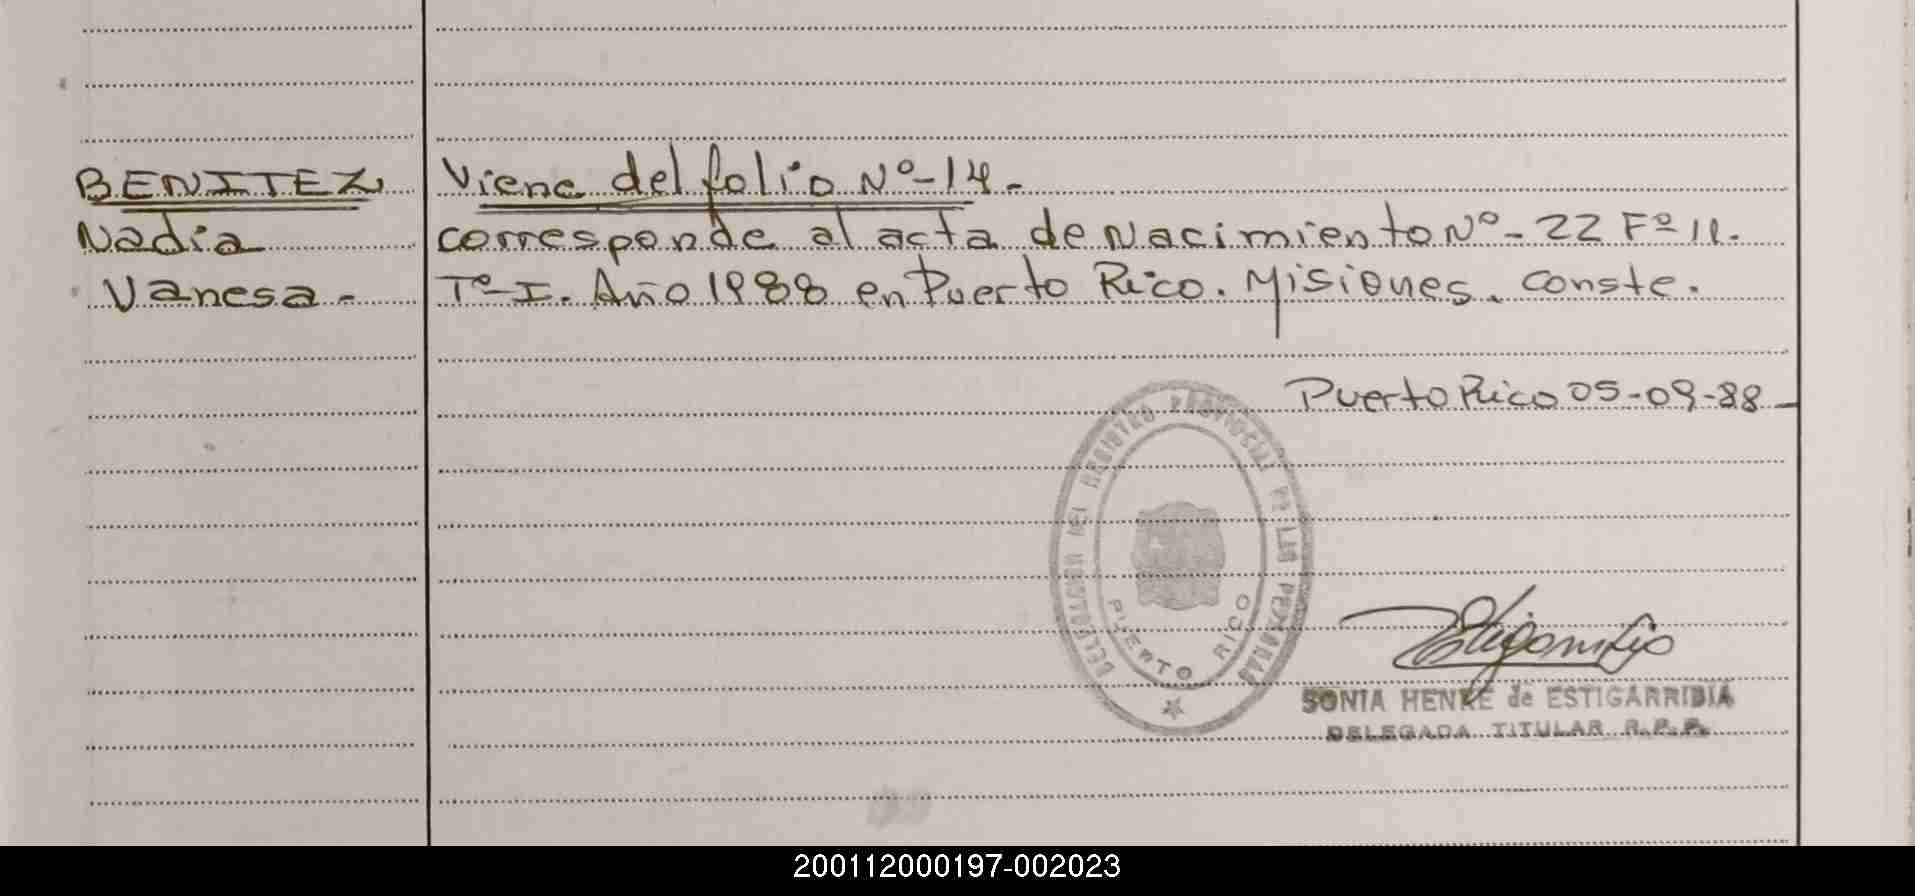 BENITEZ
Nadia
Vanesa -
Viene del folio Nº-14.-
corresponde al acta de Nacimiento Nº- 22 Fº 11.
Tº- I. Año 1988 en Puerto Rico. Misiones. Conste.
Puerto Rico 05-09-88-
DELEGACION DEL REGISTRO PROVINCIAL DE LAS PERSONAS
PUERTO RICO
SONIA HENKE de ESTIGARRIBIA
DELEGADA TITULAR R.P.P.
200112000197-002023